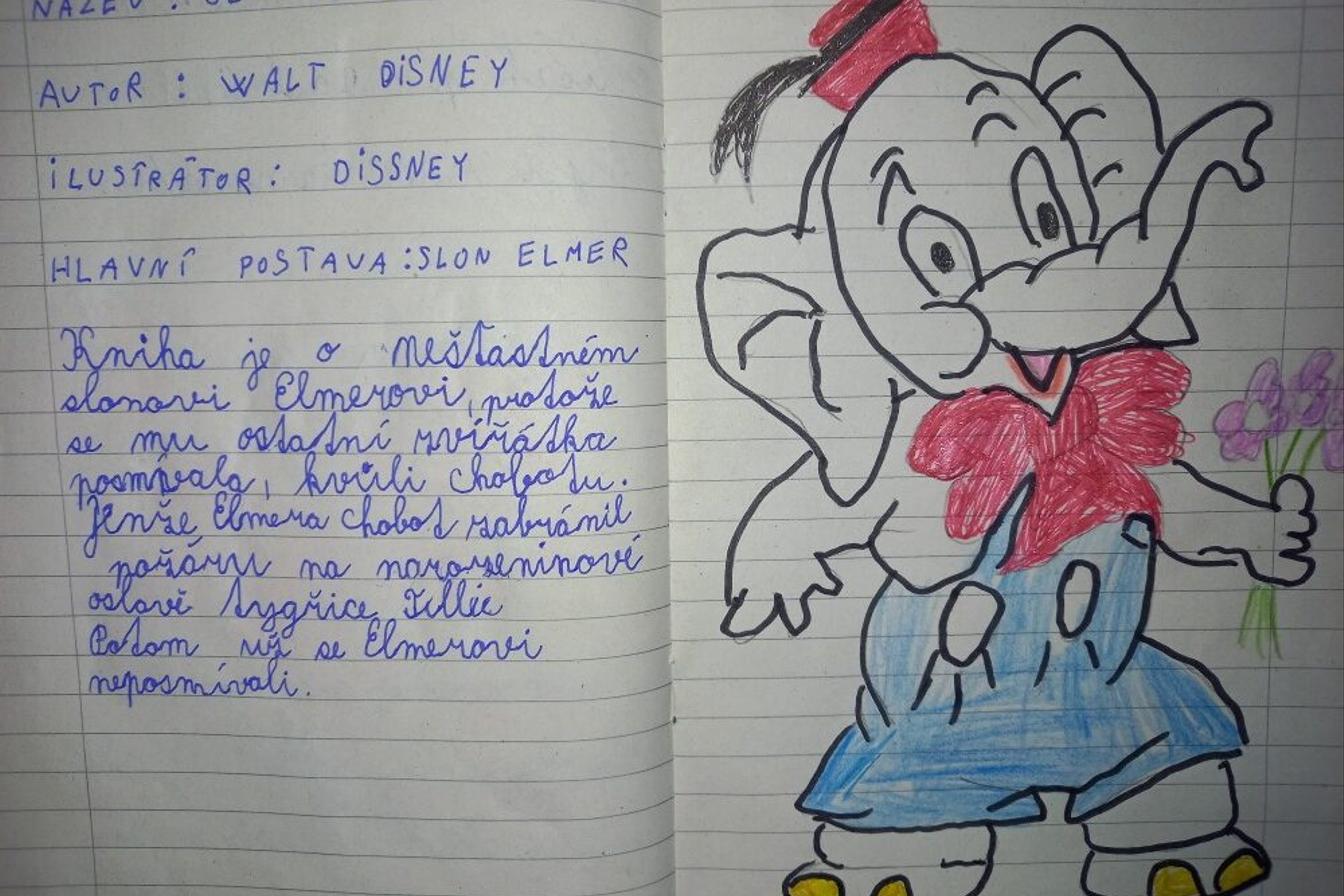 NÁZEV :
AUTOR : WALT DISNEY
ILUSTRÁTOR : DISSNEY
HLAVNÍ POSTAVA : SLON ELMER
Kniha je o nešťastném
slonovi Elmerovi, protože
se mu ostatní zvířátka
posmívala, kvůli chobotu.
Jenže Elmera chobot zabránil
požáru na narozeninové
oslavě tygřice Tillie
Potom už se Elmerovi
neposmívali.